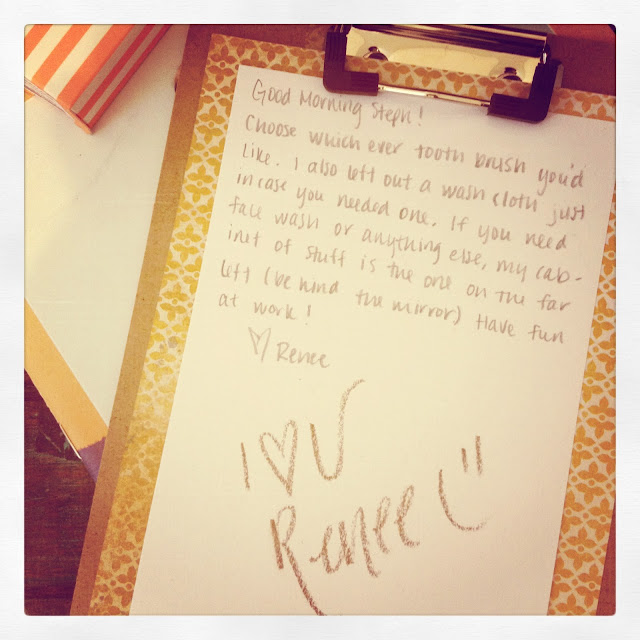 Good Morning Steph!
Choose which ever tooth brush you'd
like. I also left out a wash cloth just
incase you needed one. If you need
face wash or anything else, my cab-
inet of stuff is the one on the far
left (behind the mirror) Have fun
at work!
♡ Renee
I ♡ U
Renee (:"